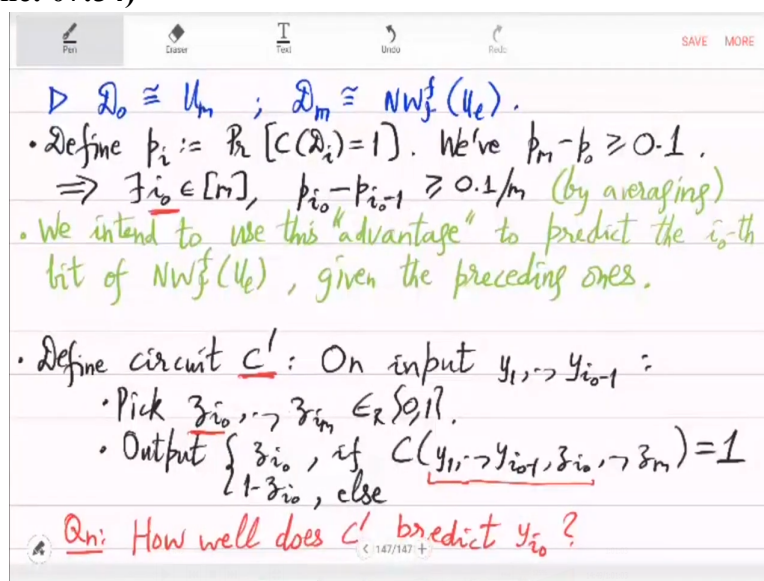 Pen Eraser Text Undo Redo SAVE MORE
▷ 𝒟₀ ≅ Uₘ ; 𝒟ₘ ≅ NW_J^f (U_ℓ).
• Define pᵢ := Pr [C(𝒟ᵢ)=1]. We've pₘ-p₀ ≥ 0.1.
⇒ ∃i₀ ∈ [m], p_{i₀} - p_{i₀-1} ≥ 0.1/m (by averaging)
• We intend to use this "advantage" to predict the i₀-th
bit of NW_J^f (U_ℓ), given the preceding ones.
• Define circuit C': On input y₁,..,y_{i₀-1} :
• Pick z_{i₀},..,z_{m} ∈_R {0,1}.
• Output { z_{i₀}, if C(y₁,..,y_{i₀-1}, z_{i₀},..,zₘ)=1
1-z_{i₀}, else
Qn: How well does C' predict y_{i₀}?
< 147/147 +